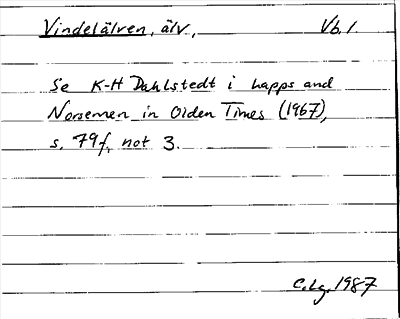 Vindelälven, älv., Vb. l.
Se K-H Dahlstedt i Lapps and
Norsemen in Olden Times (1967),
s. 79f, not 3.
C.Lg. 1987